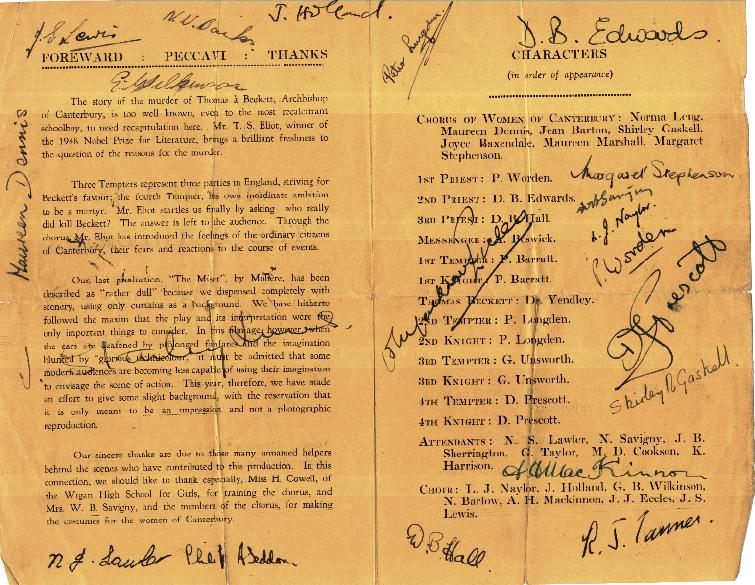 J. S. Lewis
J. Holland.
FOREWARD : PECCAVI : THANKS
The story of the murder of Thomas à Beckett, Archbishop
of Canterbury, is too well known, even to the most recalcitrant
schoolboy, to need recapitulation here. Mr. T. S. Eliot, winner of
the 1948 Nobel Prize for Literature, brings a brilliant freshness to
the question of the reasons for the murder.
Three Tempters represent three parties in England, striving for
Beckett's favour; the fourth Tempter, his own inordinate ambition
to be a martyr. Mr. Eliot startles us finally by asking who really
did kill Beckett? The answer is left to the audience. Through the
chorus Mr. Eliot has introduced the feelings of the ordinary citizens
of Canterbury, their fears and reactions to the course of events.
Our last production, "The Miser", by Molière, has been
described as "rather dull" because we dispensed completely with
scenery, using only curtains as a background. We have hitherto
followed the maxim that the play and its interpretation were the
only important things to consider. In this film age, however, when
the ears are deafened by prolonged fanfares and the imagination
blunted by "glorious technicolor", it must be admitted that some
modern audiences are becoming less capable of using their imagination
to envisage the scene of action. This year, therefore, we have made
an effort to give some slight background, with the reservation that
it is only meant to be an impression and not a photographic
reproduction.
Our sincere thanks are due to those many unnamed helpers
behind the scenes who have contributed to this production. In this
connection, we should like to thank especially, Miss H. Cowell, of
the Wigan High School for Girls, for training the chorus, and
Mrs. W. B. Savigny, and the members of the chorus, for making
the costumes for the women of Canterbury.
Maureen Dennis
N. J. Lawler
Philip A Seddon
Peter Longden
D. B. Edwards.
CHARACTERS
(in order of appearance)
CHORUS OF WOMEN OF CANTERBURY : Norma Leng,
Maureen Dennis, Jean Barton, Shirley Gaskell,
Joyce Baxendale, Maureen Marshall, Margaret
Stephenson.
1ST PRIEST : P. Worden.
2ND PRIEST : D. B. Edwards.
3RD PRIEST : D. B. Hall.
MESSENGER : A. Beswick.
1ST TEMPTER : P. Barratt.
1ST KNIGHT : P. Barratt.
THOMAS BECKETT : Dr. Yendley.
2ND TEMPTER : P. Longden.
2ND KNIGHT : P. Longden.
3RD TEMPTER : G. Unsworth.
3RD KNIGHT : G. Unsworth.
4TH TEMPTER : D. Prescott.
4TH KNIGHT : D. Prescott.
ATTENDANTS : N. S. Lawler, N. Savigny, J. B.
Sherrington, G. Taylor, M. D. Cookson, K.
Harrison.
CHOIR : L. J. Naylor, J. Holland, G. B. Wilkinson,
N. Barlow, A. H. Mackinnon, J. J. Eccles, J. S.
Lewis.
Margaret Stephenson.
L. J. Naylor.
P Worden
D Prescott
Shirley R Gaskell.
A H MacKinnon
D. B Hall.
R. J. Tanner.